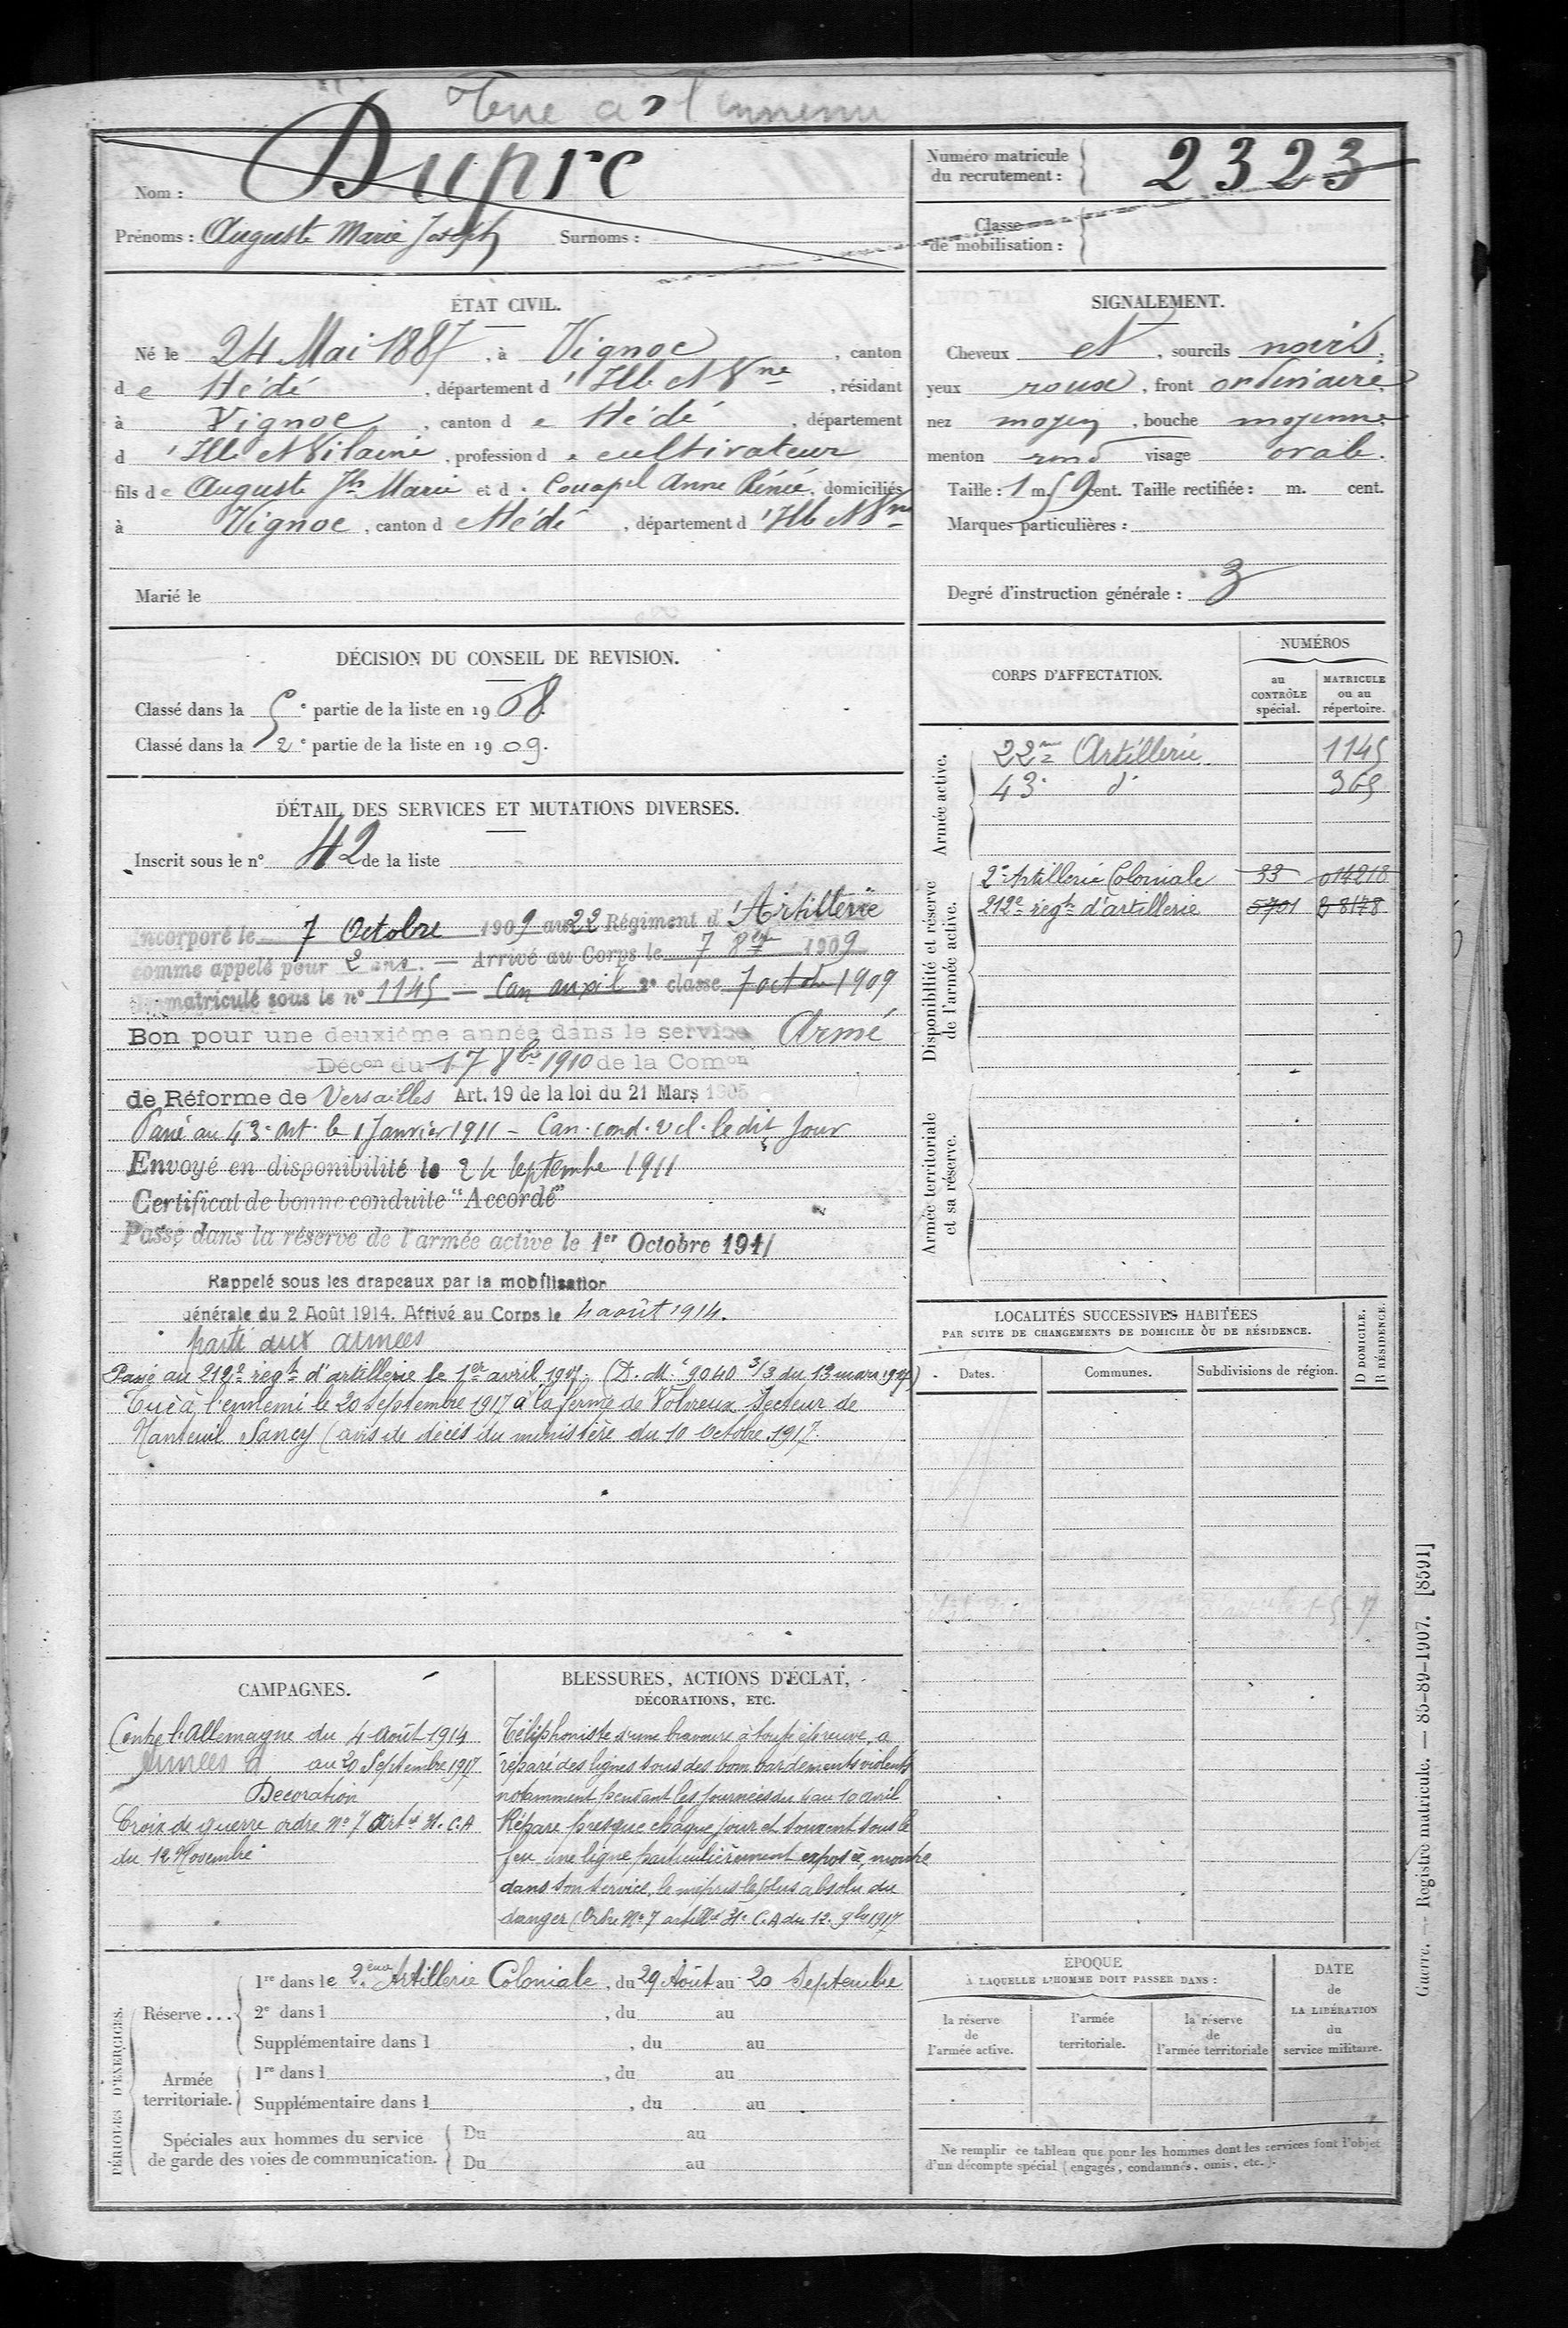 Tué à l'ennemi
Nom : Dupré
Prénoms : Auguste Marie Joseph Surnoms :
Numéro matricule du recrutement : 2323
Classe de mobilisation :
ÉTAT CIVIL.
Né le 24 Mai 1887, à Vignoc, canton
de Hédé, département d'Ille et Vne, résidant
à Vignoc, canton de Hédé, département
d'Ille et Vilaine, profession de cultivateur
fils de Auguste Jh Marie et d. Couapel Anne Rénée, domiciliés
à Vignoc, canton d Hédé, département d'Ille et Vne
Marié le
SIGNALEMENT.
Cheveux et, sourcils noirs
yeux roux, front ordinaire,
nez moyen, bouche moyenne,
menton rond visage ovale.
Taille : 1 m. 59 cent. Taille rectifiée : m. cent.
Marques particulières :
Degré d'instruction générale : 3
DÉCISION DU CONSEIL DE REVISION.
Classé dans la 5e partie de la liste en 1908.
Classé dans la 2e partie de la liste en 1909.
DÉTAIL DES SERVICES ET MUTATIONS DIVERSES.
Inscrit sous le n° 42 de la liste
Incorporé le 7 Octobre 1909 au 22 Régiment d'Artillerie
comme appelé pour 2 ans. — Arrivé au Corps le 7 8bre 1909
Immatriculé sous le n° 1145 — Can auxil 2e classe 7 octobre 1909
Bon pour une deuxième année dans le service Armé
Décon du 17 8bre 1910 de la Comon
de Réforme de Versailles Art. 19 de la loi du 21 Mars 1905
Passé au 43e Art. le 1 Janvier 1911 - Can. cond. vel. le dit Jour
Envoyé en disponibilité le 24 Septembre 1911
Certificat de bonne conduite "Accordé"
Passé dans la réserve de l'armée active le 1er Octobre 1911
Rappelé sous les drapeaux par la mobilisation
générale du 2 Août 1914. Arrivé au Corps le 4 août 1914.
parti aux armées
Passé au 212e régt d'artillerie le 1er avril 1917. (D. Mle 9040 3/3 du 13 mars 1917)
Tué à l'ennemi le 20 septembre 1917 à la ferme de Volvreux Secteur de
Nanteuil Sancy (avis de décès du ministère du 10 Octobre 1917.
CORPS D'AFFECTATION.
NUMÉROS
au CONTRÔLE spécial.
MATRICULE ou au répertoire.
Armée active.
22me Artillerie 1145
43e d° 365
Disponibilité et réserve de l'armée active.
2e Artillerie Coloniale 33 014218
212e régt d'artillerie 5701 B 8178
Armée territoriale et sa réserve.
LOCALITÉS SUCCESSIVES HABITÉES
PAR SUITE DE CHANGEMENTS DE DOMICILE OU DE RÉSIDENCE.
Dates. Communes. Subdivisions de région. D DOMICILE. R RÉSIDENCE.
CAMPAGNES.
Contre l'Allemagne du 4 Août 1914
Armées d au 20 Septembre 1917
Decoration
Croix de guerre ordre No 7 Artie H. C.A
du 12 Novembre
BLESSURES, ACTIONS D'ÉCLAT,
DÉCORATIONS, ETC.
Téléphoniste d'une bravoure à toute épreuve, a
réparé des lignes sous des bombardements violents
notamment pendant les journées du 4 au 10 avril
Répare presque chaque jour et souvent sous le
feu une ligne particulièrement exposée, montre
dans son service, le mépris le plus absolu du
danger (Ordre No 7 artillie C.A du 12. 9bre 1917
PÉRIODES D'EXERCICES.
Réserve . . .
1re dans le 2ème Artillerie Coloniale, du 29 Août au 20 Septembre
2e dans l , du au
Supplémentaire dans l , du au
Armée territoriale.
1re dans l , du au
Supplémentaire dans l , du au
Spéciales aux hommes du service
de garde des voies de communication.
Du au
Du au
ÉPOQUE
À LAQUELLE L'HOMME DOIT PASSER DANS :
la réserve de l'armée active.
l'armée territoriale.
la réserve de l'armée territoriale
DATE de LA LIBÉRATION du service militaire.
Ne remplir ce tableau que pour les hommes dont les services font l'objet
d'un décompte spécial (engagés, condamnés, omis, etc.).
Guerre. — Registre matricule. — 85-89-1907. [8591]